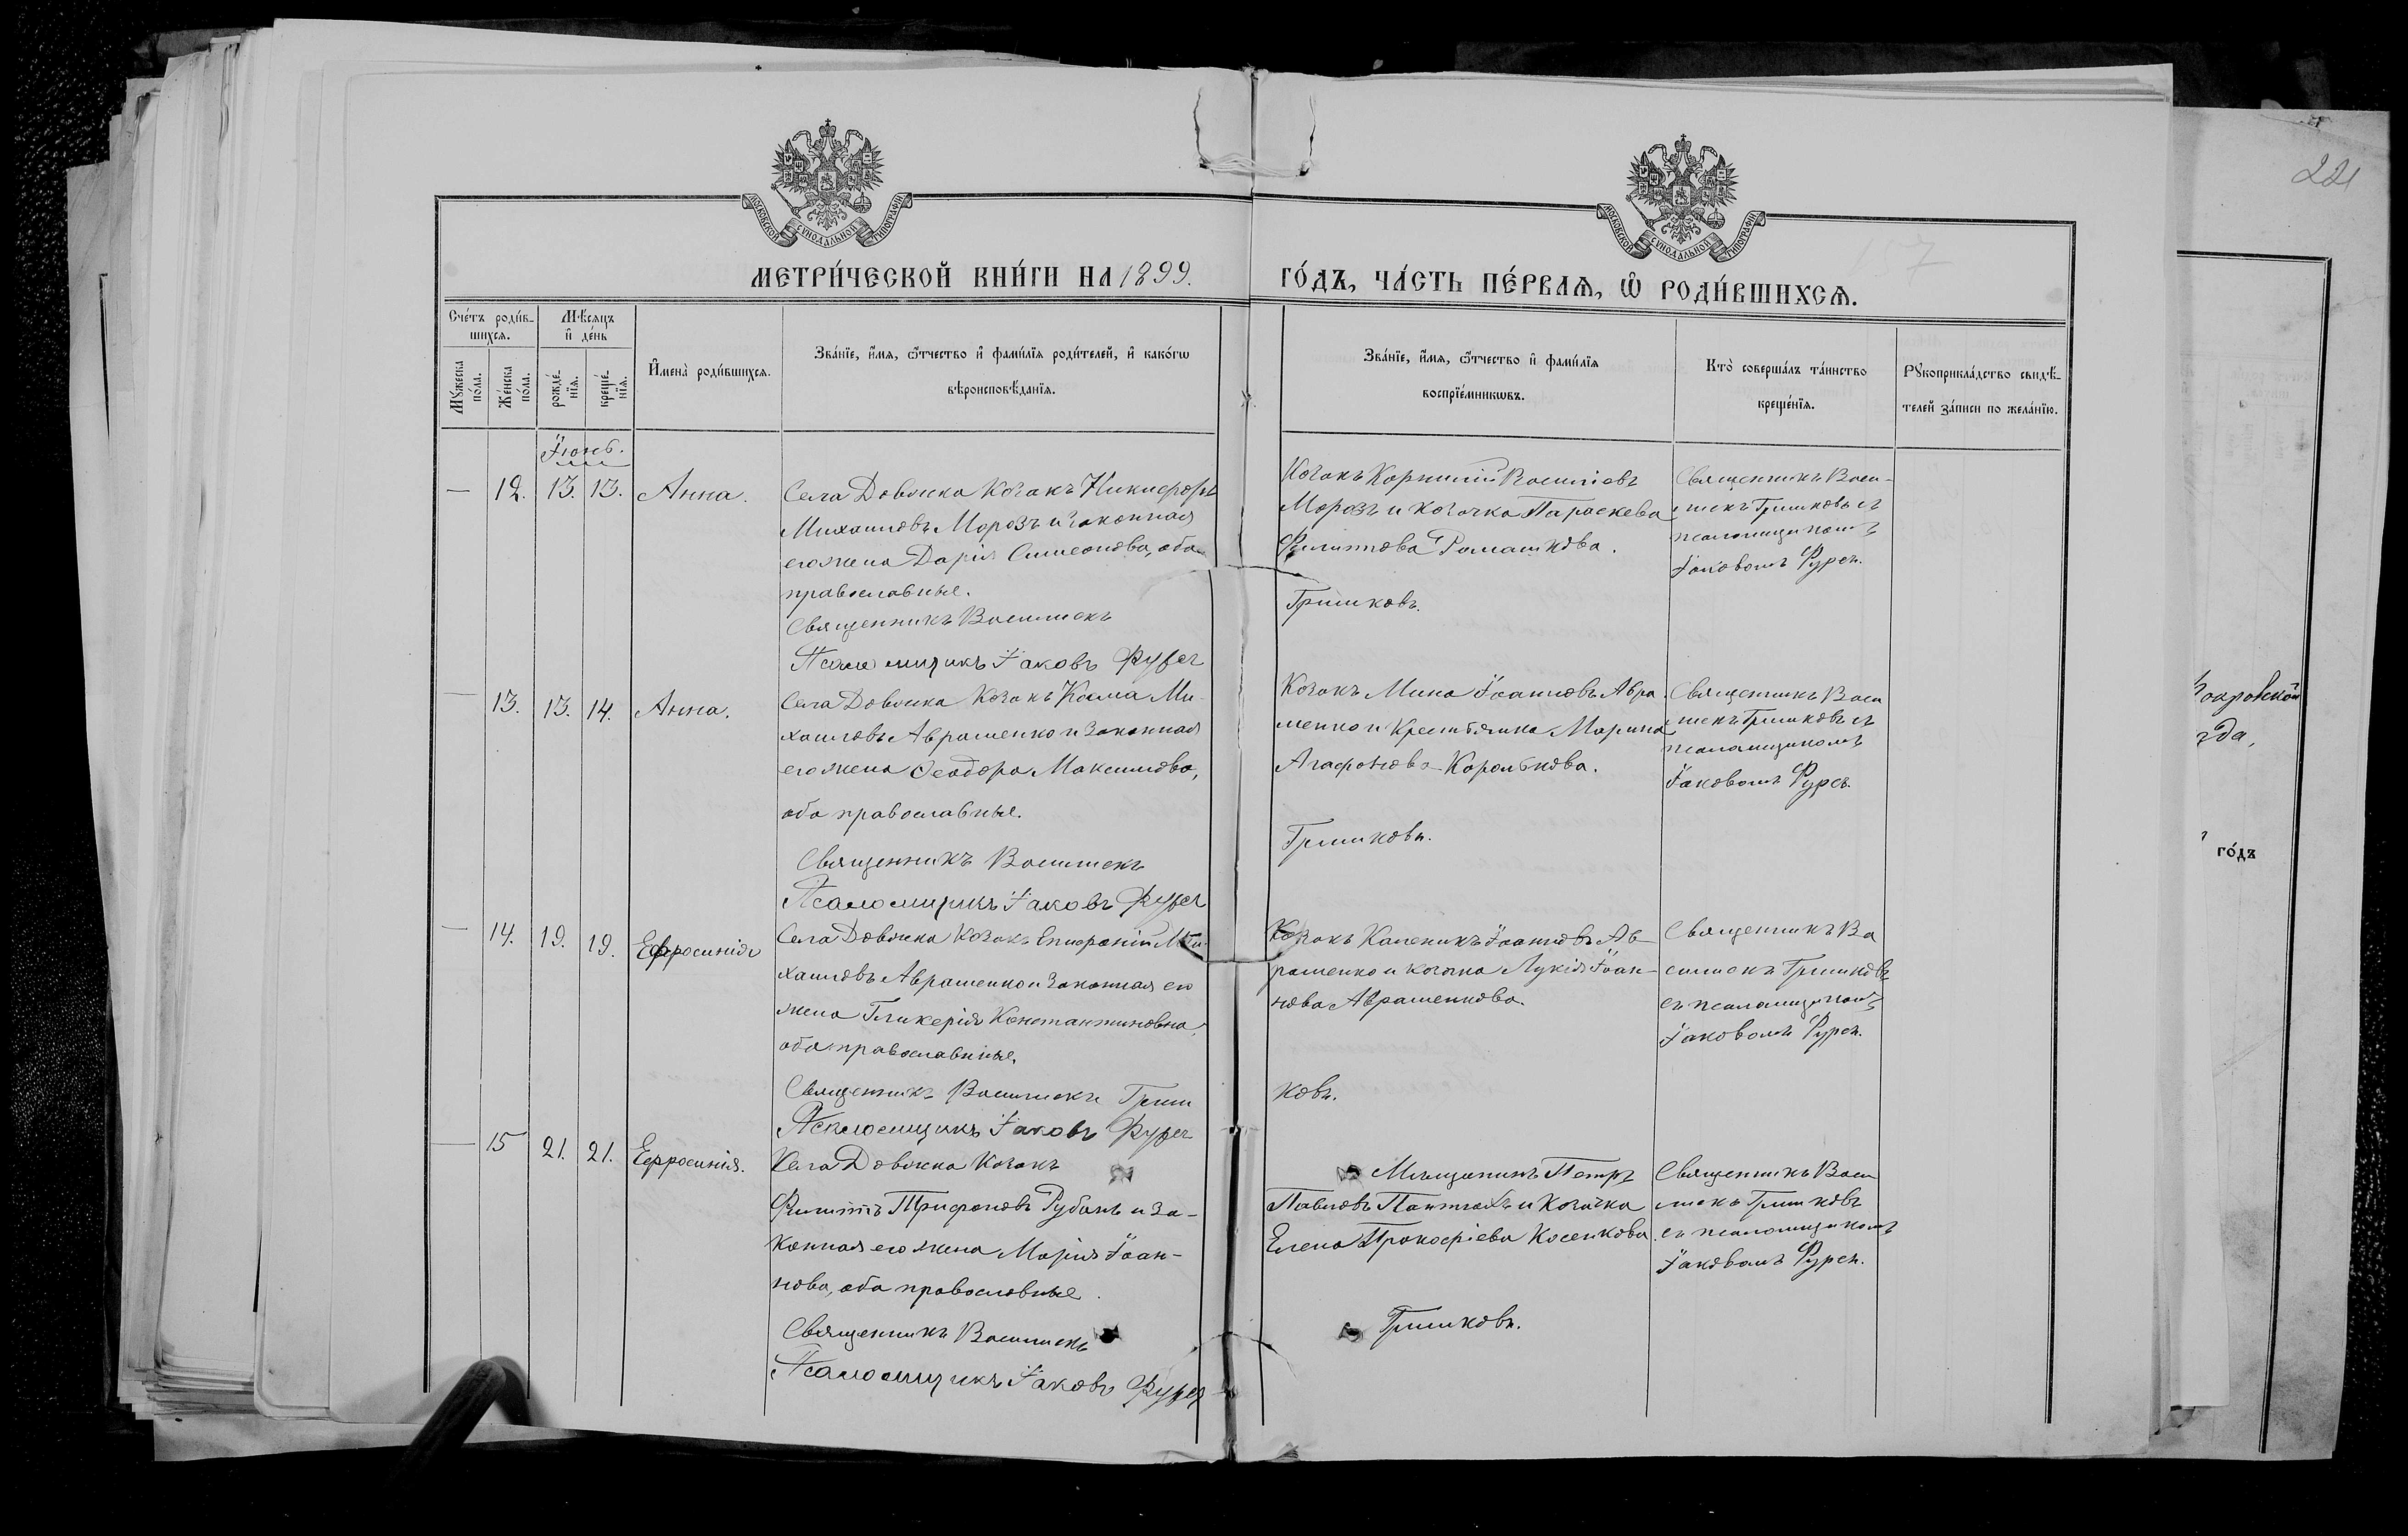 221
МЕТРИ́ЧЕСКОЙ КНИ́ГИ НА 1899. ГО́ДЪ, ЧА́СТЬ ПЕ́РВАѦ, Ѡ РОДИ́ВШИХСѦ.
Сче́тъ роди́в-
шихсѧ.
Мꙋжеска по́ла.
Же́нска по́ла.
Мѣ́сѧцъ
и҆ де́нь
рожде́-
нїѧ.
креще́-
нїѧ.
И҆мена̀ роди́вшихсѧ.
Зва́нїе, и҆́мѧ, ѻ҆́тчество и҆ фами́лїѧ роди́телей, и҆ како́гѡ
вѣроисповѣ́данїѧ.
Зва́нїе, и҆́мѧ, ѻ҆́тчество и҆ фами́лїѧ
воспрїе́мникѡвъ.
Кто̀ соверша́лъ та́инство
креще́нїѧ.
Рꙋкоприкла́дство свидѣ́-
телей за́писи по жела́нїю.
Іюнь.
— 12. 13. 13. Анна.
Села Довжика Козакъ Никифоръ
Михаиловъ Морозъ и законная
его жена Дарія Симеонова, оба
православные.
Священникъ Василискъ Гришковъ.
Псаломщикъ Іаковъ Фурса
Козакъ Корнилій Василіевъ
Морозъ и козачка Параскева
Филиппова Ромашкова.
Священникъ Васи-
лискъ Гришковъ съ
псаломщикомъ
Іаковомъ Фурса.
— 13. 13. 14. Анна.
Села Довжика Козакъ Косма Ми-
хаиловъ Авраменко и законная
его жена Ѳеодора Максимова,
оба православные.
Священникъ Василискъ Гришковъ.
Псаломщикъ Іаковъ Фурса
Козакъ Мина Іоанновъ Авра
менко и крестьянка Марина
Агафонова Королькова.
Священникъ Васи
лискъ Гришковъ съ
псаломщикомъ
Іаковомъ Фурса.
— 14. 19. 19. Ефросинія
Села Довжика Козакъ Епифаній Ми-
хаиловъ Авраменко и законная его
жена Гликерія Константиновна,
оба православные.
Священникъ Василискъ Гришковъ.
Псаломщикъ Іаковъ Фурса
Козакъ Каленикъ Іоанновъ Ав-
раменко и козачка Лукія Іоан-
нова Авраменкова.
Священникъ Ва
силискъ Гришковъ
съ псаломщикомъ
Іаковомъ Фурса.
— 15 21. 21. Ефросинія.
Села Довжика Козакъ
Филиппъ Трифоновъ Рубанъ и за-
конная его жена Марія Іоан-
нова, оба православные.
Священникъ Василискъ Гришковъ.
Псаломщикъ Іаковъ Фурса
Мѣщанинъ Петръ
Павловъ и козачка
Елена Прокофіева Косенкова.
Священникъ Васи
лискъ Гришковъ
съ псаломщикомъ
Іаковомъ Фурса.
го́дъ